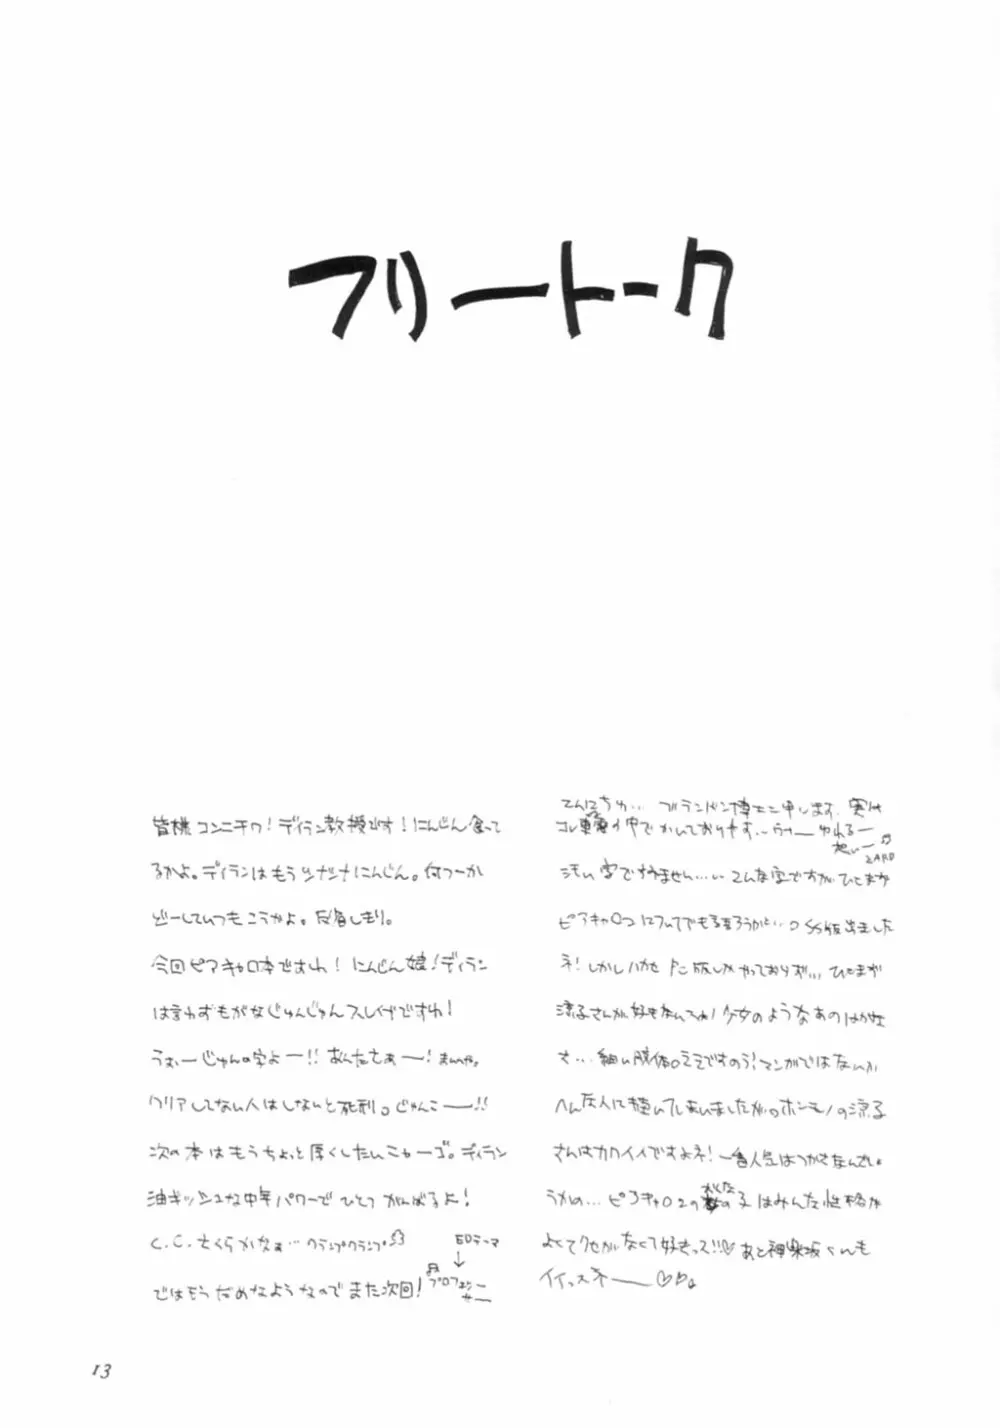 フリートーク
皆様コンニチワ！ディラン教授です！にんじん食って
るかよ。ディランはもうシナシナにんじん。何つーか
どーしていつもこうかよ。反省しきり。
今回ピアキャロ本ですわ！にんじん娘！ディラン
は言わずもがなじゅんじゅんスレイブですわ！
うおぉーじゅんの字よー！！あんたさぁー！まいいや。
クリアしてない人はしないと死刑。じゅんこー！！
次の本はもうちょっと厚くしたいニャーゴ。ディラン
油ギッシュな中年パワーでひとつがんばるよ！
C.C.さくらかなぁ…クランプクランプ
ではもうだめなようなのでまた次回！
EDテーマ
↓
♫プロフェッサー
こんにちわ… ブランドン博士と申します。実は
コレ車の中でかいております…ゆれる
想いー♫
ZARD
汚い字ですみません…こんな字ですがひとまず
ピアキャロ2についてでも語ろうかよ… SS版出ました
ネ！しかしハカセドこ版しかやっておりず… ひとまず
涼子さんが好きなんでね！少女のようなあのはかな
さ…細い肢体。ええですのう！マンガではないが
へんな人に描いてしまいましたが ホンモノの涼子
さんはカワイイですよネ！一番人気はつかさなんでしょ
うかの…ピアキャロ2の女の子はみんな性格が
よくてクセがなくて好きっス!!♡あと神楽坂くんも
イイっスネー♡
13